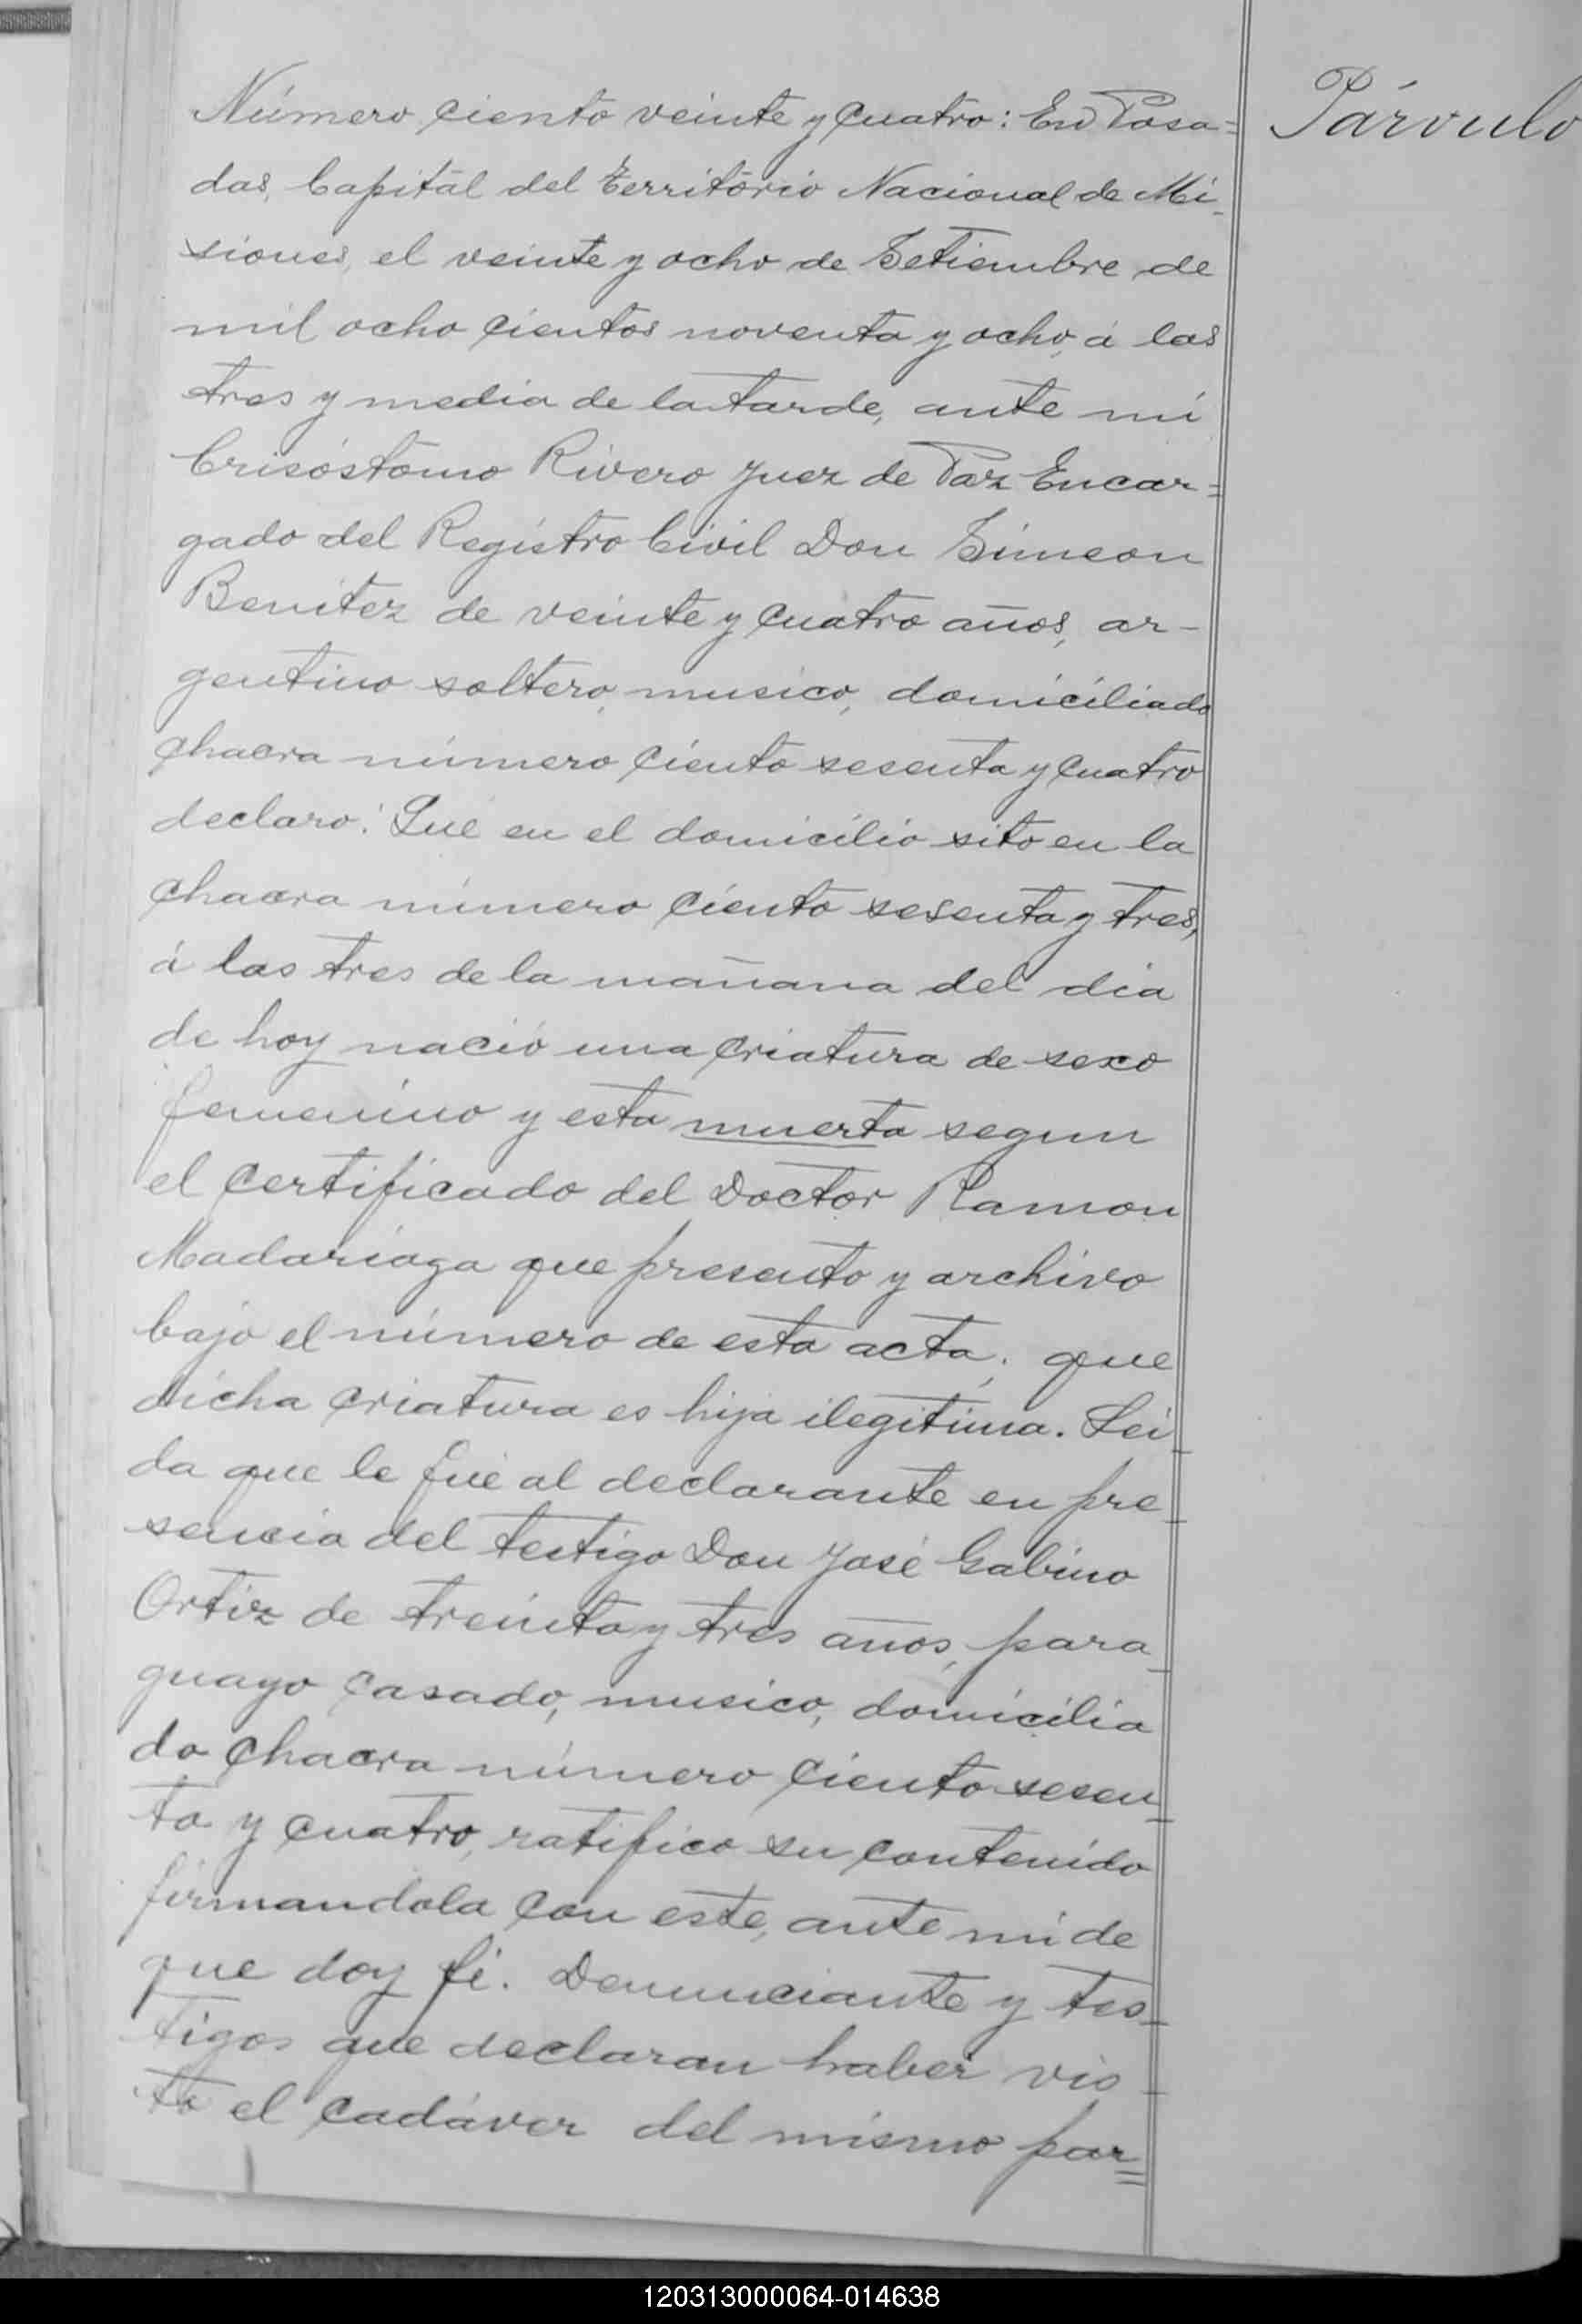 Número ciento veinte y cuatro: En Posa=
Párvulo
das, Capital del Territorio Nacional de Mi-
siones, el veinte y ocho de Setiembre de
mil ocho cientos noventa y ocho, á las
tres y media de la tarde, ante mi
Crisóstomo Rivero Juez de Paz Encar=
gado del Registro Civil Don Simeon
Benitez de veinte y cuatro años, ar-
gentino soltero, musico, domiciliado
chacra número ciento sesenta y cuatro
declaro: Que en el domicilio sito en la
chacra número ciento sesenta y tres,
á las tres de la mañana del dia
de hoy nació una criatura de sexo
femenino y esta muerta segun
el certificado del Doctor Ramon
Madariaga que presento y archivo
bajo el número de esta acta; que
dicha criatura es hija ilegitima. Lei-
da que le fué al declarante en pre-
sencia del testigo Don José Gabino
Ortiz de treinta y tres años, para-
guayo casado, musico, domicilia
do chacra número ciento sesen-
ta y cuatro, ratifico su contenido
firmandola con este, ante mi de
que doy fé. Denunciante y tes-
tigos que declaran haber vis-
to el cadáver del mismo par=
120313000064-014638